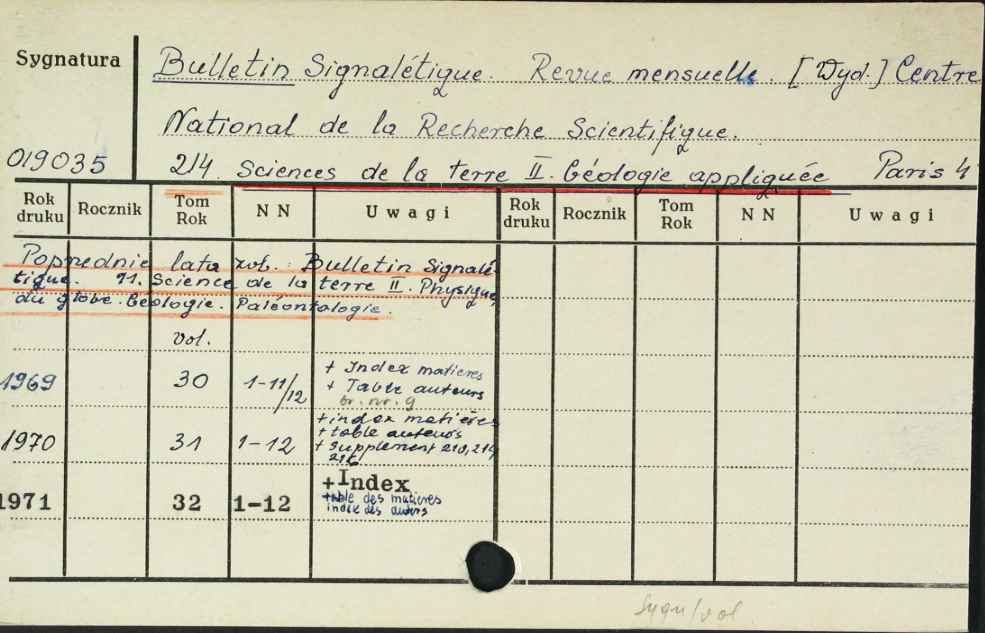 Sygnatura
Bulletin Signalétique. Revue mensuelle. [Wyd.] Centre
National de la Recherche Scientifique.
019035 214. Sciences de la terre II. Géologie appliquée Paris 4
Rok druku Rocznik Tom Rok N N Uwagi Rok druku Rocznik Tom Rok N N Uwagi
Poprzednie lata zob.: Bulletin Signalé-
tique. 11. Science de la terre II. Physique
du globe. Géologie. Paléontologie.
vol.
1969 30 1-11/12 + Index matieres
+ Table auteurs
br. nr. 9
1970 31 1-12 + index matières
+ table auteurs
+ Supplement 210, 214
216
1971 32 1-12 + Index
table des matieres
index des auters
Sygn/vol